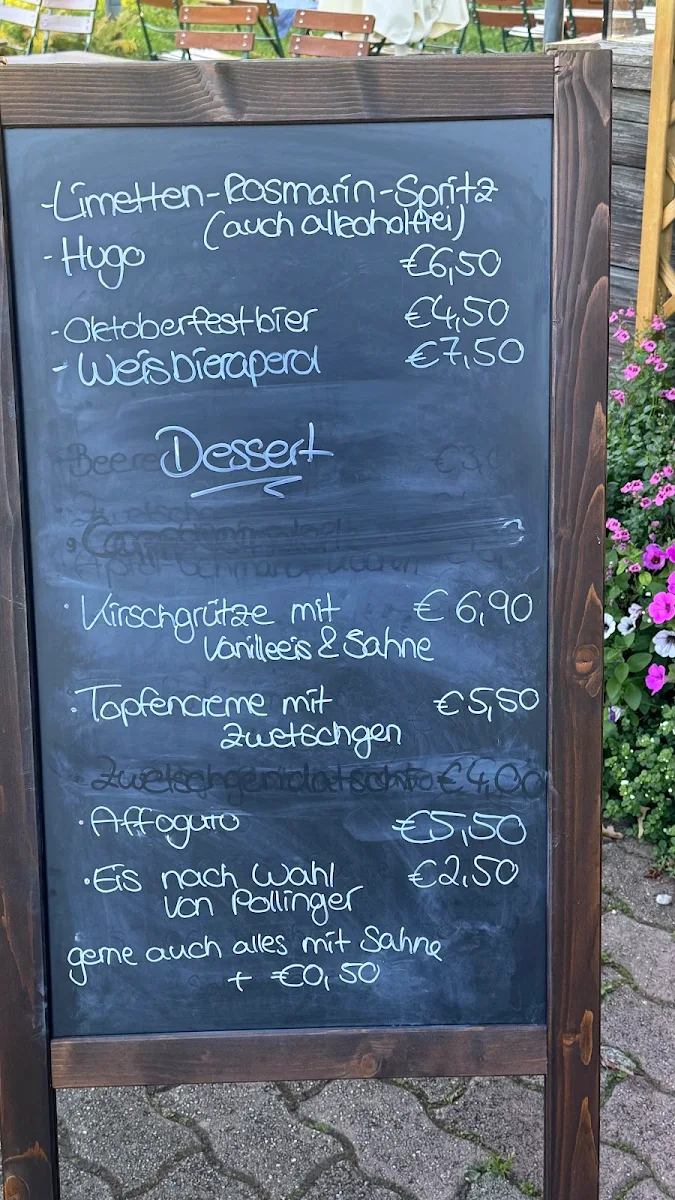 -Limetten-Rosmarin-Spritz
(auch alkoholfrei)
-Hugo €6,50
-Oktoberfestbier €4,50
-Weisbieraperol €7,50
Dessert
·Kirschgrütze mit €6,90
Vanilleeis & Sahne
·Topfencreme mit €5,50
Zwetschgen
Zwetschgendatschi €4,00
·Affogato €5,50
·Eis nach Wahl €2,50
von Pollinger
gerne auch alles mit Sahne
+ €0,50